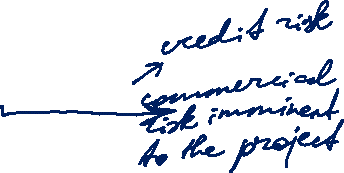 credit risk
commercial
risk imminent
to the project